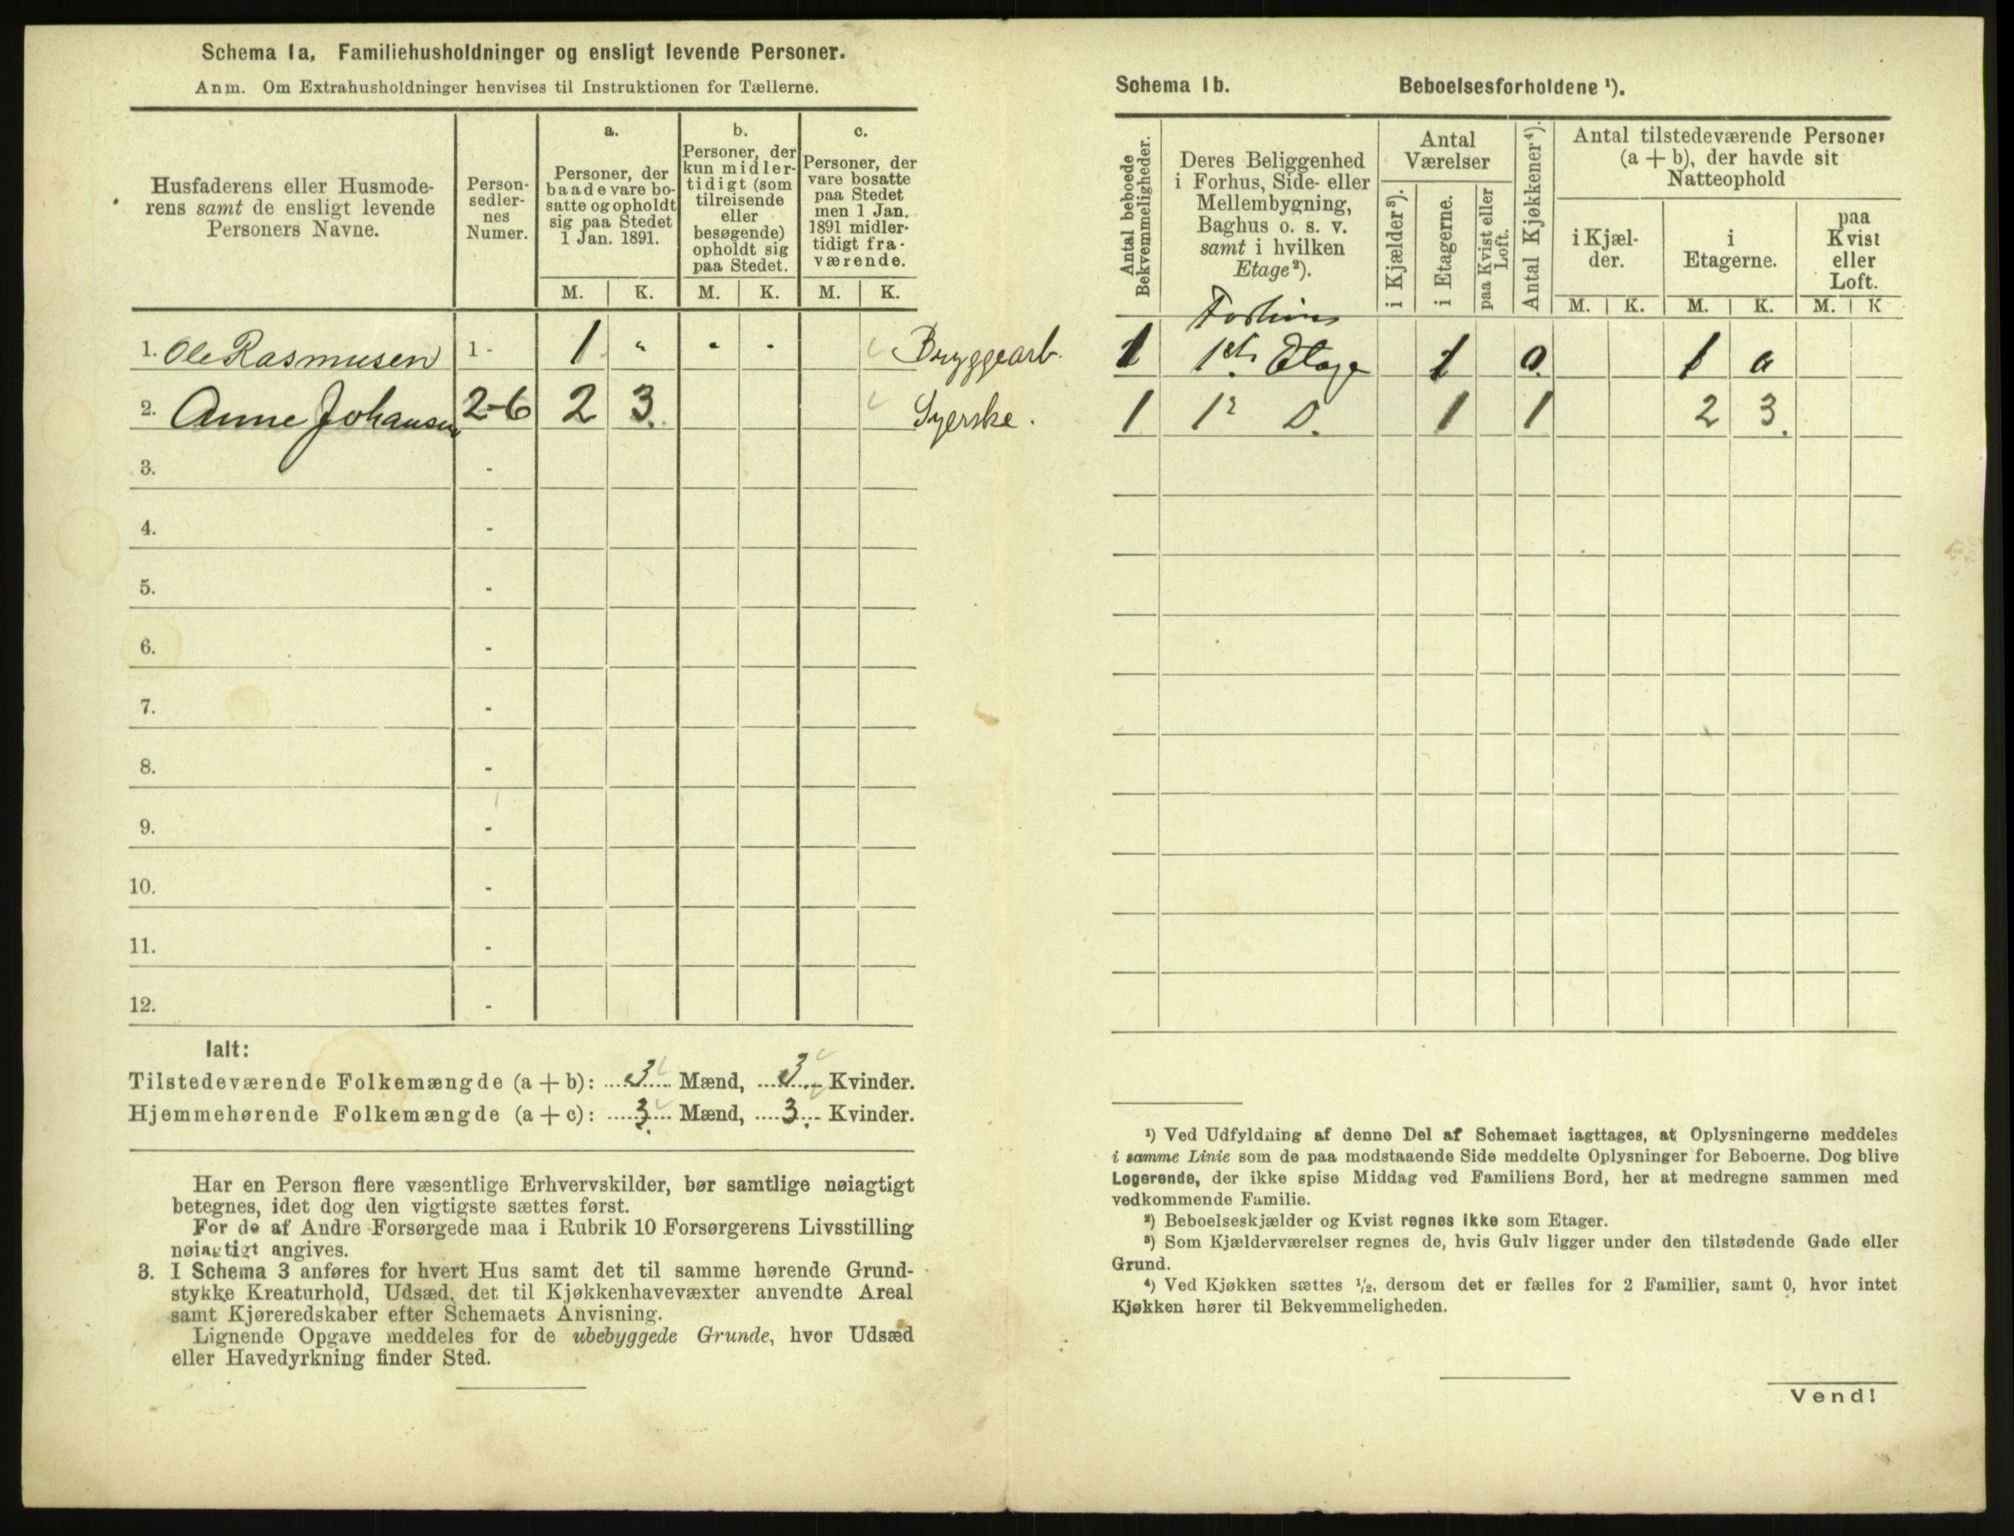 Schema 1a. Familiehusholdninger og ensligt levende Personer.
Anm. Om Extrahusholdninger henvises til Instruktionen for Tællerne.
Husfaderens eller Husmoderens samt de ensligt levende Personers Navne.
Personsedlernes Numer.
a.
Personer, der baade vare bosatte og opholdt sig paa Stedet 1 Jan. 1891.
b.
Personer, der kun midlertidigt (som tilreisende eller besøgende) opholdt sig paa Stedet.
c.
Personer, der vare bosatte paa Stedet men 1 Jan. 1891 midlertidigt fraværende.
M. K. M. K. M. K.
1. Ole Rasmusen 1 - 1 " " " Bryggearb.
2. Anne Johansen 2-6 2 3. Syerske.
3. -
4. -
5. -
6. -
7. -
8. -
9. -
10. -
11. -
12. -
Ialt:
Tilstedeværende Folkemængde (a + b): 3 Mænd, 3 Kvinder.
Hjemmehørende Folkemængde (a + c): 3 Mænd, 3 Kvinder.
Har en Person flere væsentlige Erhvervskilder, bør samtlige nøiagtigt
betegnes, idet dog den vigtigste sættes først.
For de af Andre Forsørgede maa i Rubrik 10 Forsørgerens Livsstilling
nøiagtigt angives.
3. I Schema 3 anføres for hvert Hus samt det til samme hørende Grund-
stykke Kreaturhold, Udsæd, det til Kjøkkenhavevæxter anvendte Areal
samt Kjøreredskaber efter Schemaets Anvisning.
Lignende Opgave meddeles for de ubebyggede Grunde, hvor Udsæd
eller Havedyrkning finder Sted.
Schema 1b. Beboelsesforholdene ¹).
Antal beboede Bekvemmeligheder.
Deres Beliggenhed i Forhus, Side- eller Mellembygning, Baghus o. s. v. samt i hvilken Etage ²).
Antal Værelser
i Kjælder ³).
i Etagerne.
paa Kvist eller Loft.
Antal Kjøkkener ⁴).
Antal tilstedeværende Personer (a + b), der havde sit Natteophold
i Kjælder.
i Etagerne.
paa Kvist eller Loft.
M. K. M. K. M. K
Forhus
1 1ste Etage 1 0. 1 0
1 1ᵉ D. 1 1 2 3.
¹) Ved Udfyldning af denne Del af Schemaet iagttages, at Oplysningerne meddeles
i samme Linie som de paa modstaaende Side meddelte Oplysninger for Beboerne. Dog blive
Logerende, der ikke spise Middag ved Familiens Bord, her at medregne sammen med
vedkommende Familie.
²) Beboelseskjælder og Kvist regnes ikke som Etager.
³) Som Kjælderværelser regnes de, hvis Gulv ligger under den tilstødende Gade eller
Grund.
⁴) Ved Kjøkken sættes ¹/₂, dersom det er fælles for 2 Familier, samt 0, hvor intet
Kjøkken hører til Bekvemmeligheden.
Vend!